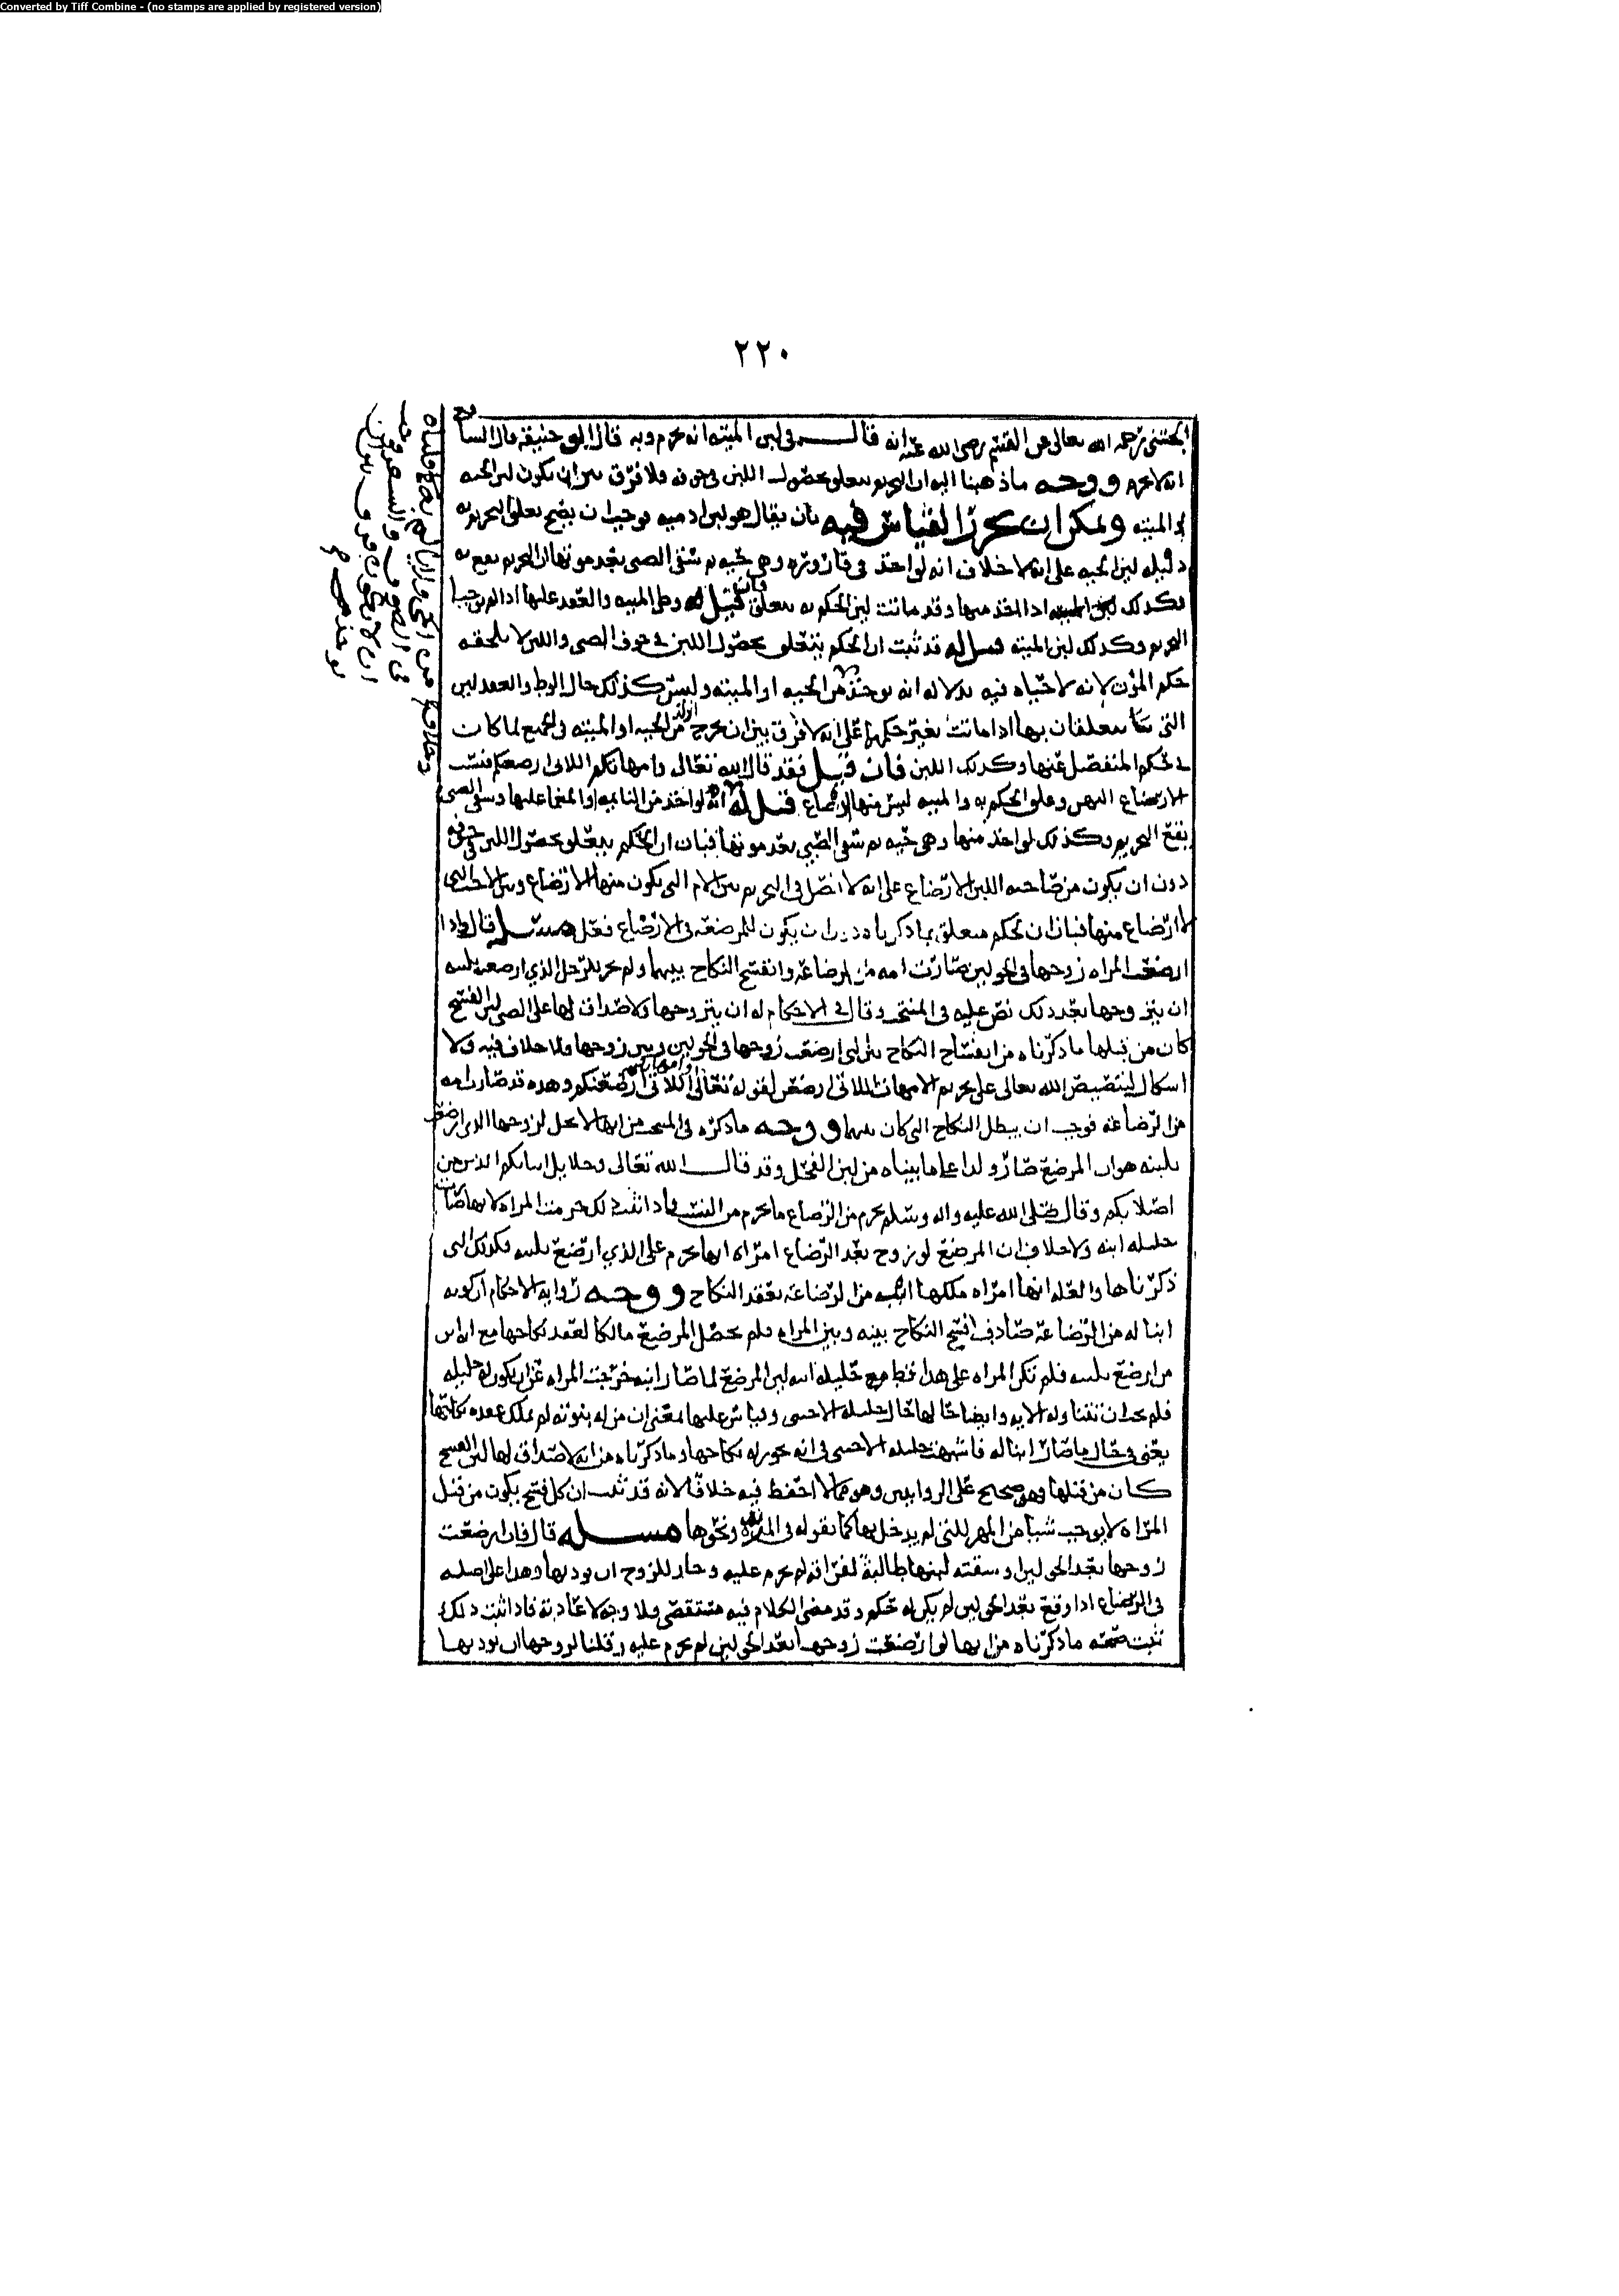 Converted by Tiff Combine - (no stamps are applied by registered version)
٢٢٠
رحمه الله تعالى عن القسم رضي الله عنه انه قال في لبن الميته انه يحرم وبه قال ابو حنيفه وقال
انه لا يحرم ووجه ما ذهبنا اليه ان التحريم يتعلق بحصول اللبن في جوفه ولا فرق بين ان يكون لبن الحيه
او الميته ويمكن ان يحرر القياس فيه بان يقال هو لبن ادميه فوجب ان يصح تعلق التحريم به
دليله لبن الحيه على انه لا خلاف انه لو اخذ في قاروره وهي حيه ثم سقي الصبي بعد موتها ان التحريم يقع به
فكذلك اذا اخذ منها وقد ماتت لبن الحكم به يتعلق فان قيل وطي الميته والعقد عليها اذا لم يوجبا
التحريم وكذلك لبن الميته قيل له قد ثبت ان الحكم يتعلق بحصول اللبن في جوف الصبي واللبن لا يلحقه
حكم الموت لانه لا حياه فيه بدلاله انه يوخذ من الحيه او الميته وليس كذلك حال الوطي والعقد لبن
التي يتعلقان بها اذا ماتت تغير حكمها على انه لا فرق بين ان يخرج الولد من الحيه او الميته في الجميع لما كان
في حكم المنفصل عنها وكذلك اللبن فان قيل فقد قال الله تعالى وامهاتكم اللاتي ارضعنكم فنسب
الارضاع اليهن وعلق الحكم به والميته ليس منها ارضاع قيل له انه لو اخذ من النايمه او المغما عليها وسقي الصبي
يقع التحريم وكذلك لو اخذ منها وهي حيه ثم سقي الصبي بعد موتها فبان ان الحكم يتعلق بحصول اللبن في جوفه
دون ان يكون من صاحبه اللبن الارضاع على انه لا فصل في التحريم بين الام التي يكون منها الارضاع وبين الاخت التي
لا ارضاع منها فبان ان الحكم متعلق بما ذكرناه دون ان يكون للمرضعه في الارضاع فعل مسئله قال واذا
ارضعت المراه زوجها في الحولين صارت امه من الرضاعه وانفسخ النكاح بينهما ولم يحل للرجل الذي ارضعه بلبنه
ان يتزوجها بعد ذلك نص عليه في المنتخب وقال في الاحكام له ان يتزوجها ولا صداق لها على الصبي لان الفسخ
كان من قبلها ما ذكرناه من انفساخ النكاح بين التي ارضعت زوجها في الحولين وبين زوجها ولا خلاف فيه ولا
اشكال لتنصيص الله تعالى على تحريم الامهات اللاتي ارضعن لقوله تعالى وامهاتكم اللاتي ارضعنكم وهذه قد صارت امه
من الرضاعه فوجب ان يبطل النكاح الذي كان بينهما ووجه ما ذكره في المنتخب من انها لا تحل لزوجها الذي ارضعت
بلبنه هو ان المرضع صار ولدا على ما بيناه من لبن الفحل وقد قال الله تعالى وحلايل ابنايكم الذين من
اصلابكم وقال صلى الله عليه واله وسلم يحرم من الرضاع ما يحرم من النسب فاذا ثبت ذلك حرمت المراه لانها صارت
حليله ابنه ولا خلاف ان المرضع لو تزوج بعد الرضاع امراه انها تحرم على الذي ارضع بلبنه فكذلك التي
ذكرناها والعله انها امراه ملكها ابنه من الرضاعه بعقد النكاح ووجه روايه الاحكام ان كونه
ابنا له من الرضاعه صادف فسخ النكاح بينه وبين المراه فلم يحصل المرضع مالكا لعقد نكاحها مع انه ابن
من ارضع بلبنه فلم تكن المراه على هذا قط حليله ابنه لبن المرضع لما صار ابنه خرجت المراه عن ان يكون له حليله
فلم يجب ان تتناوله الايه وايضا حالها حال حليله الاجنبي وقياس عليها بمعنى ان من له بنوته لم يملك عقده نكاحها
يعني في حال ما صار ابنا له فاشبهت حليله الاجنبي في انه يجوز له نكاحها وما ذكرناه من انه لا صداق لها لبن الفسخ
كان من قبلها وهو صحيح على الروايتين وهو مما لا احفظ فيه خلافا لانه قد ثبت ان كل فسخ يكون من قبل
المراه لا يوجب شيا من المهر للتي لم يدخل بها كما نقوله في المرتده ونحوها مسئله قال فان ارضعت
زوجها بعد الحولين او سقته لبنها طالبة لفراقه لم يحرم عليه وجاز للزوج ان يودبها وهذا على اصله
في الرضاع اذا وقع بعد الحولين لم يكن له حكم وقد مضى الكلام فيه مستقصى ولا وجه لاعادته فاذا ثبت ذلك
ثبت صحته ما ذكرناه من انها لو ارضعت زوجها بعد الحولين لم يحرم عليه وقلنا لزوجها ان يودبها